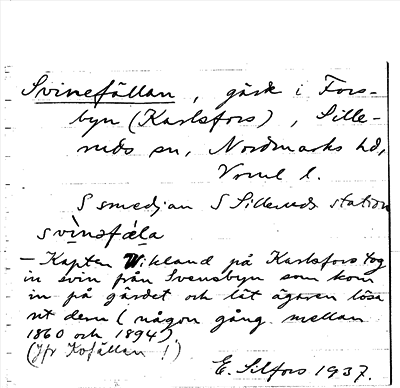 Svinefällan, gärde i Fors-
byn (Karlsfors), Sille-
ruds sn, Nordmarks hd,
Vrml l.
S smedjan S Silleruds station
svìnəfæ̀la
— Kapten Wikland på Karlsfors tog
in svin från Svensbyn som kom
in på gärdet och lät ägaren lösa
ut dem (någon gång mellan
1860 och 1894).
(Jfr Kofällan!)
E. Silfors 1937.